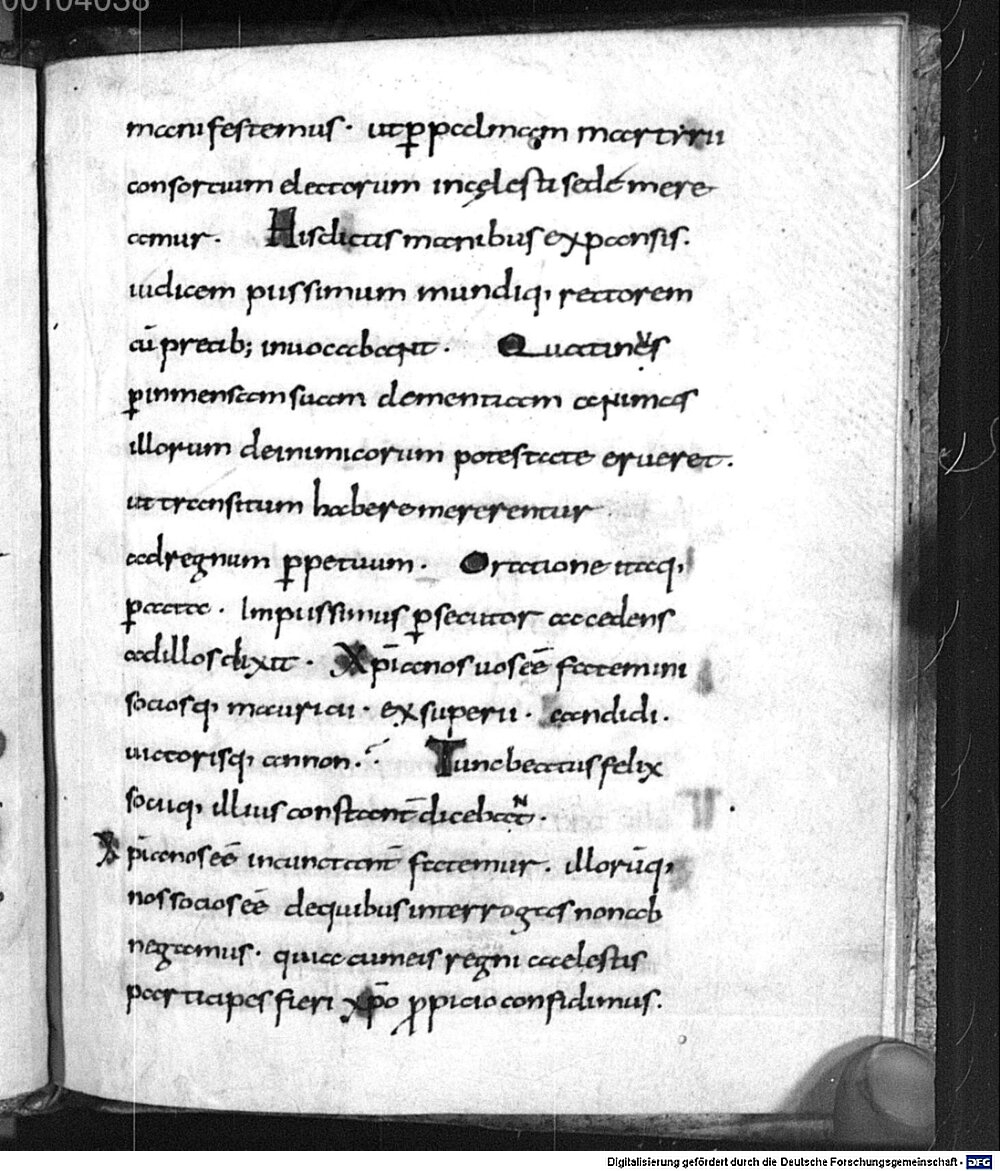 00104038
manifestemus· ut ꝑ palmam martyrii
consortium electorum in cęlesti sede mere
amur· His dictis manibus expansis.
iudicem piissimum mundiq, rectorem
cū precib; inuocabant· Quatinus
ꝑ inmensam suam clementiam animas
illorum de inimicorum potestate erueret.
ut transitum habere mererentur
ad regnum ꝑpetuum· Oratione itaq,
ꝑacta· Impiissimus ꝑsecutor accedens
ad illos dixit· Xp̄ianos uos eē fatemini
sociosq, mauricii· exsuperii· candidi.
uictorisq, annon· Tunc beatus felix
sociiq, illius constant̄ dicebant·
Xp̄ianos eē incunctant̄ fatemur· illorūq,
nos socios eē de quibus interrogas non ab
negamus· quia cum eis regni caelestis
participes fieri xp̄o ꝓpicio confidimus.
Digitalisierung gefördert durch die Deutsche Forschungsgemeinschaft - DFG